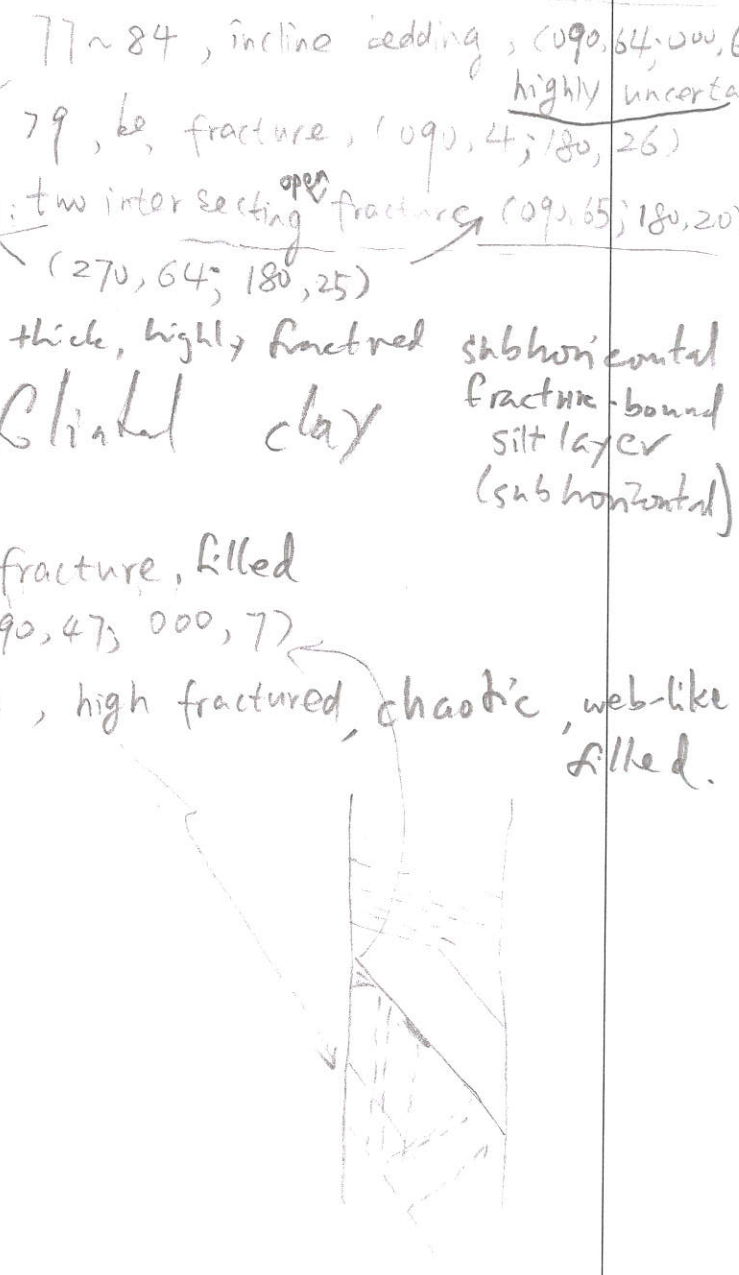 77~84, incline bedding, (090,64;000,6
highly uncerta
79, be, fracture, (090,4;180,26)
: two intersecting open fracture (090,65;180,20
(270,64; 180,25)
thick, highly fractured subhorizontal
clay fracture-bound
silt layer
(subhorizontal)
fracture, filled
90,47; 000,7)
, high fractured, chaotic, web-like
filled.